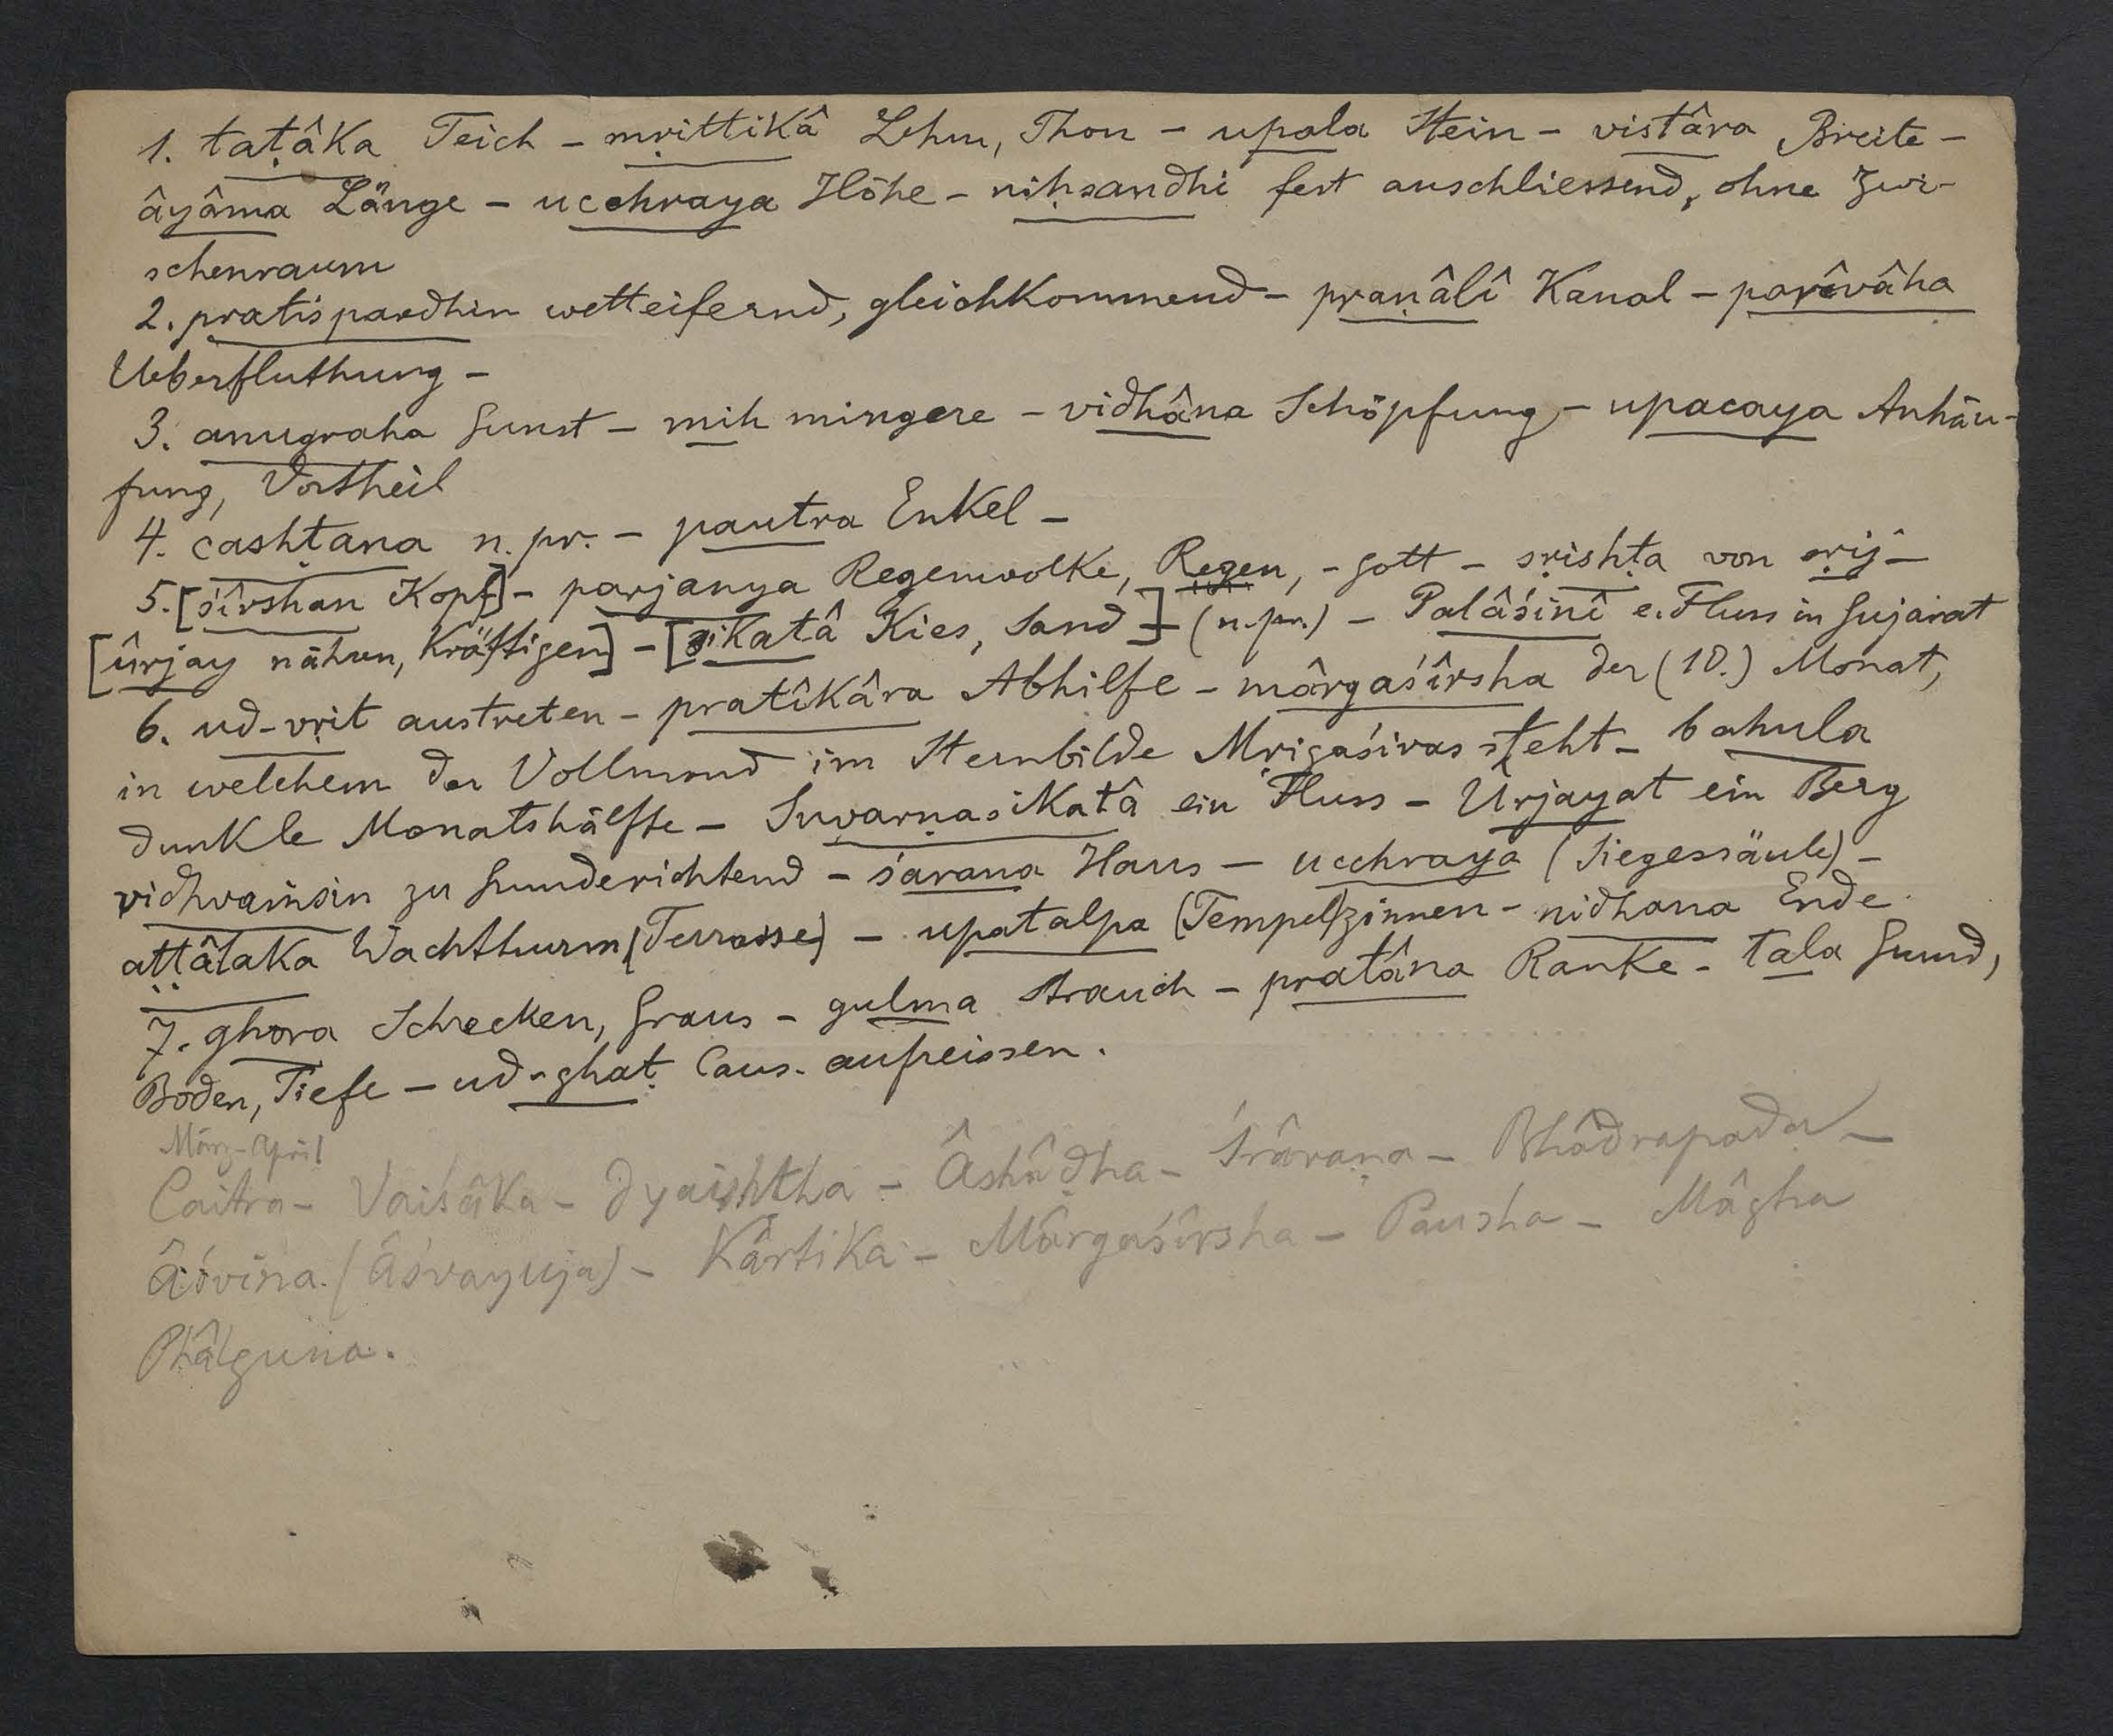 1. taṭâka Teich - mṛittikâ Lehm, Thon - upala Stein - vistâra Breite -
âyâma Länge - ucchraya Höhe - niḥsandhi fest anschliessend, ohne Zwi-
schenraum
2. pratispardhin wetteifernd, gleichkommend - praṇâlî Kanal - parîvâha
Ueberfluthung -
3. anugraha Gunst - mih mingere - vidhâna Schöpfung - upacaya Anhäu-
fung, Vortheil
4. cashṭana n. pr. - pautra Enkel -
5. [śîrshan Kopf] - parjanya Regenwolke, Regen, - Gott - sṛishṭa von sṛij -
[ûrjay nähren, kräftigen] - [sikatâ Kies, Sand] - (n. pr.) - Palâśinî e. Fluss in Gujarat
6. ud-vṛit austreten - pratîkâra Abhilfe - mârgaśîrsha der (10.) Monat,
in welchem der Vollmond im Sternbilde Mṛigaśiras steht - bahula
dunkle Monatshälfte - Suvarṇasikatâ ein Fluss - Ûrjayat ein Berg
vidhvaṁsin zu Grunde richtend - śaraṇa Haus - ucchraya (Siegessäule) -
aṭṭâlaka Wachtthurm [Terrasse] - upatalpa (Tempel)zinnen - nidhana Ende
7. ghora Schrecken, Graus - gulma Strauch - pratâna Ranke - tala Grund,
Boden, Tiefe - ud-ghaṭ Caus. aufreissen.
März-April
Caitra - Vaiśâka - Jyaishṭha - Âshâḍha - Śrâvaṇa - Bhâdrapada -
Âśvina. (Âśvayuja) - Kârtika - Mârgaśîrsha - Pausha - Mâgha
Phâlguna.